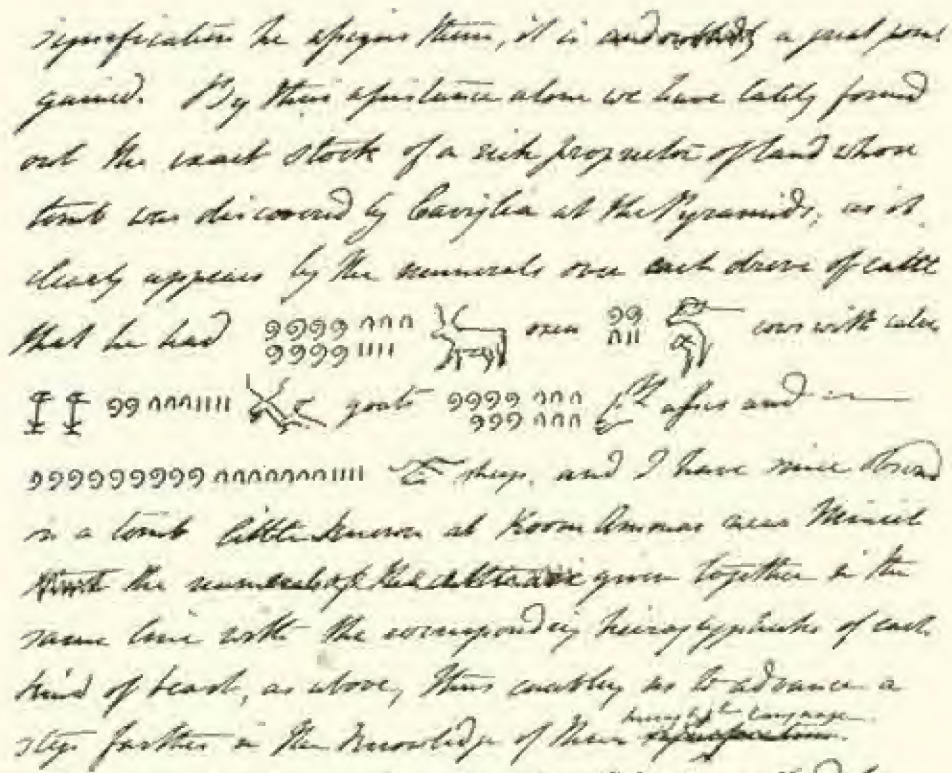 signification he assigns them, it is undoubtedly a great point
gained. By their assistance alone we have lately found
out the exact stock of a rich proprietor of land whose
tomb was discovered by Caviglia at the Pyramids, as it
clearly appears by the numerals over each drove of cattle
that he had oxen cows with calves
goats asses and
sheep, and I have since observed
in a tomb little known at Koom Ammar near Minieh
the numerals of the given together in the
same line with the corresponding hieroglyphicks of each
kind of beast, as above, thus enabling us to advance a
step further in the knowledge of their language.